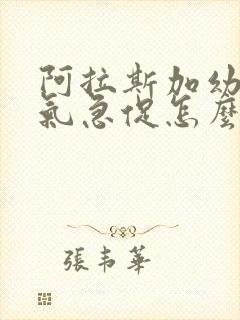 阿拉斯加幼
氣急促怎麼
張韋華